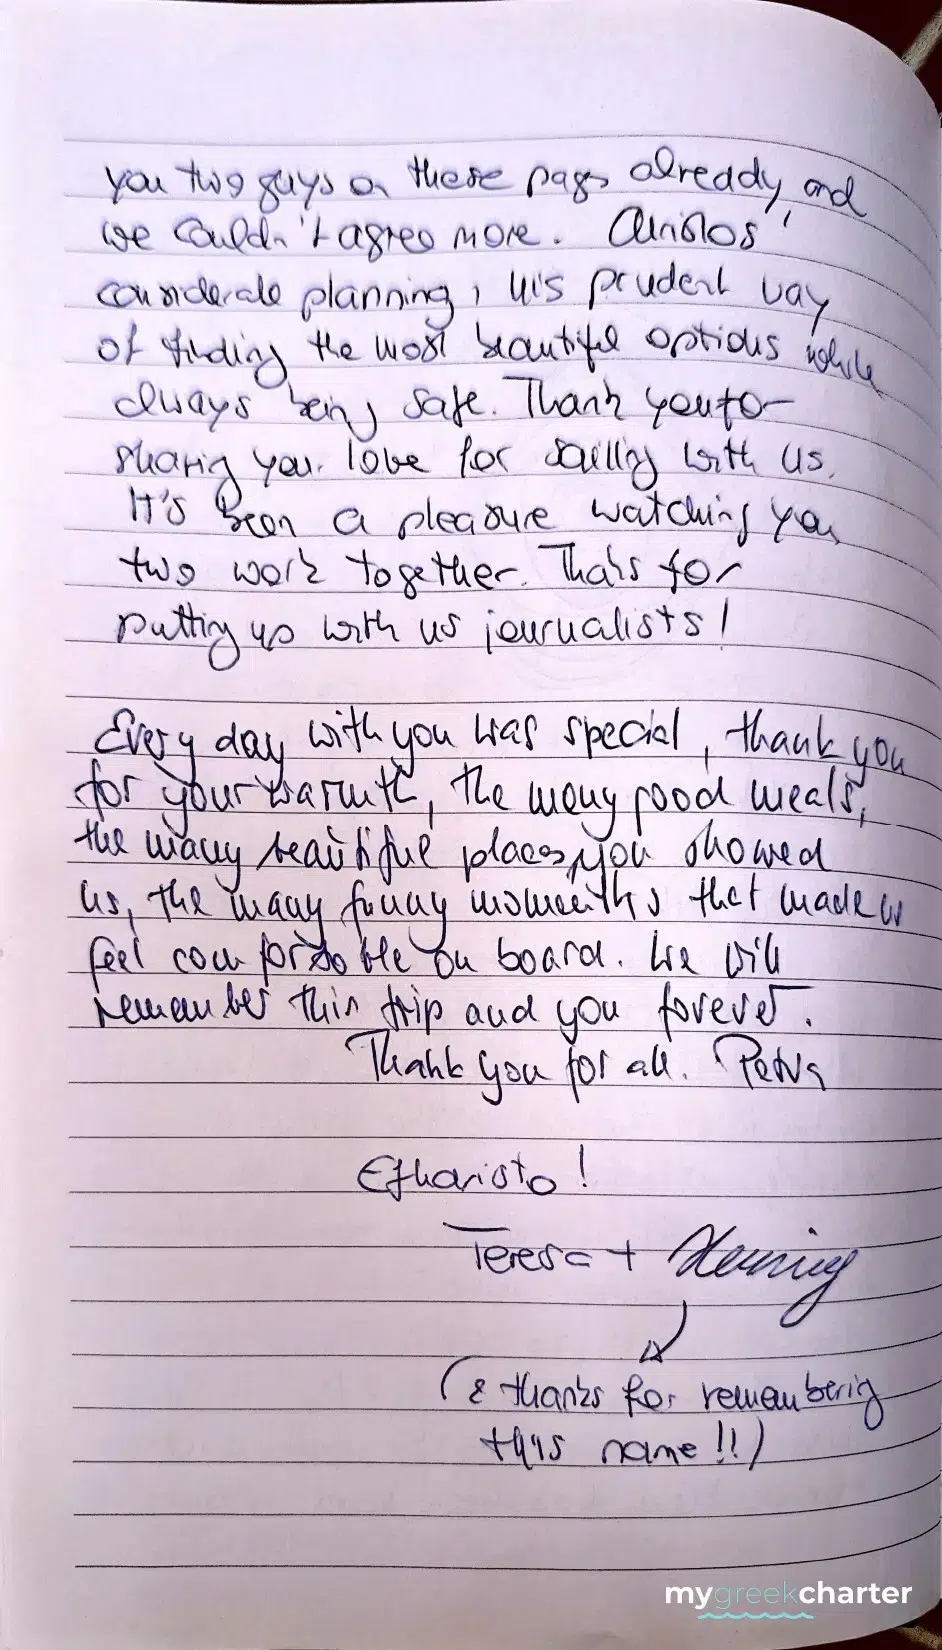 you two guys on these pages already, and
we couldn't agree more. Christos'
considerate planning, his prudent way
of finding the most beautiful options while
always being safe. Thank you for
sharing your love for sailing with us.
It's been a pleasure watching you
two work together. Thanks for
putting up with us journalists!
Every day with you was special, thank you
for your warmth, the many good meals,
the many beautiful places you showed
us, the many funny moments that made us
feel comfortable on board. We will
remember this trip and you forever.
Thank you for all. Petra
Efharisto!
Teresa + Henning
(& thanks for remembering
this name!!)
mygreekcharter